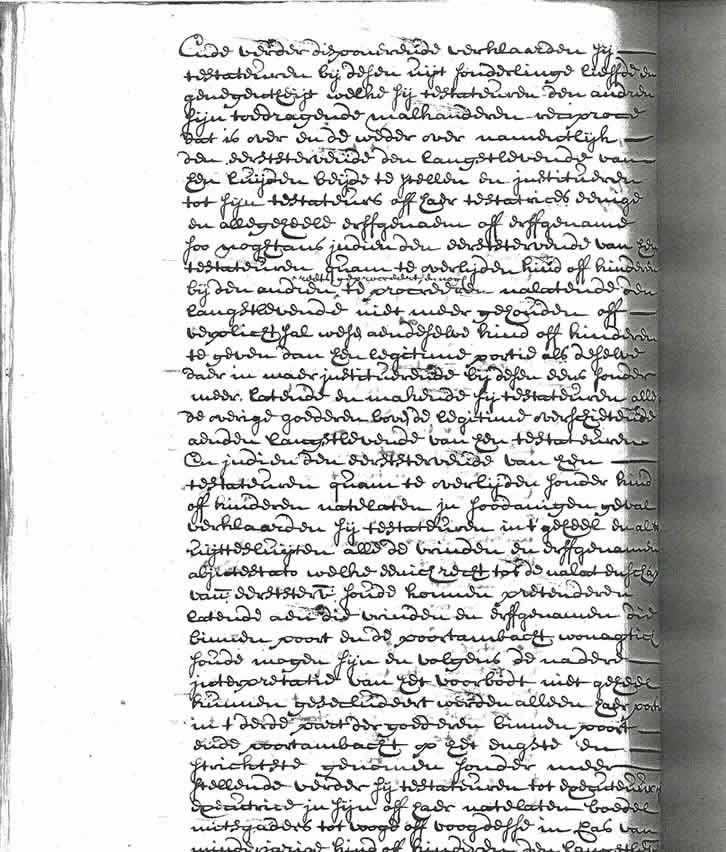 Ende verder disponerende verklaarden sij
testateuren bij desen uijt sonderlinge liefde en
genegentheijt welke sij testateuren den andren
sijn toedragende malkanderen reciproce
dat is over en de weder over namentlijk
den eerststervende den langstlevende van
hen luijden beijde te stellen en institueren
tot sijn testateurs off haer testatrices eenige
en alleheele erffgenaem off erffgename
soo nogtans indien den eerststervende van hen
testateuren quam te overlijden kind off kinderen
bij den andren te procreëren nalatende den
langstlevende niet meer gehouden off
verplicht sal wesen aendeselve kind off kinderen
te geven dan hen legitime portie als deselve
daer in maer instituerende bij desen eens sonder
meer latende en makende sij testateuren alle
de overige goederen boven de legitime overschietende
aenden langstlevende van hen testateuren
En indien den eerststervende van hen
testateuren quam te overlijden sonder kind
off kinderen natelaten in soodanigen geval
verklaarden sij testateuren in 't geheel en al te
uijttesluijten alle de vrinden en erffgenamen
abintestato welke eenich recht tot de nalatenschap
van eerststerv soude konnen pretenderen
latende aen die vrinden en erffgenamen die
binnen poort en de poortambacht wonagtich
soude mogen sijn en volgens de nadere
interpretatie van het voorbodt niet geheel
kunnen gesecludeert werden alleen haer portie
in 't derde part der goederen binnen poort
ende poortambacht op het engste en
strichtste genomen sonder meer
stellende verder sij testateuren tot executeur
executrice in sijn off haer natelaten boedel
mitsgaders tot voogd off voogdesse in cas van
minderjarige kind off kinderen den langstlev